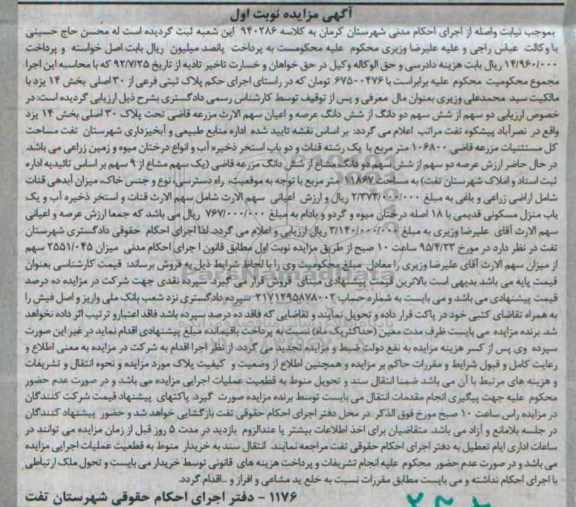 آگهی مزایده نوبت اول
بموجب نیابت واصله از اجرای احکام مدنی شهرستان کرمان به کلاسه ۹۴۰۲۸۶ این شعبه ثبت گردیده است له محسن حاج حسینی
با وکالت عباس راجی و علیه علیرضا وزیری محکوم علیه محکومست به پرداخت پانصد میلیون ریال بابت اصل خواسته و پرداخت
۱۴/۹۶۰/۰۰۰ ریال بابت هزینه دادرسی و حق الوکاله وکیل در حق خواهان و خسارت تاخیر تادیه از تاریخ ۹۲/۷/۲۵ که با محاسبه این اجرا
مجموع محکومیت محکوم علیه برابراست با ۶۷۵۰۰۴۷۶ تومان که در راستای اجرای حکم پلاک ثبتی فرعی از ۳۰ اصلی بخش ۱۴ یزد با
مالکیت سید محمدعلی وزیری بعنوان مال معرفی و پس از توقیف توسط کارشناس رسمی دادگستری بشرح ذیل ارزیابی گردیده است: در
خصوص ارزیابی دو سهم از شش سهم دو دانگ از شش دانگ عرصه و اعیان سهم الارث مزرعه قاضی تحت پلاک ۳۰ اصلی بخش ۱۴ یزد
واقع در نصرآباد پیشکوه تفت مراتب اعلام می گردد: بر اساس نقشه تایید شده اداره منابع طبیعی و آبخیزداری شهرستان تفت مساحت
کل مستثنیات مزرعه قاضی ۱۰۶۸۰۰ متر مربع با یک رشته قنات و دو باب استخر ذخیره آب و انواع درختان میوه و زمین زراعی می باشد.
در حال حاضر ارزش عرصه دو سهم از شش سهم دو دانگ مشاع از شش دانگ مزرعه قاضی (یک سهم مشاع از ۹ سهم بر اساس تائیدیه اداره
ثبت اسناد و املاک شهرستان تفت) به مساحت ۱۱۸۶۷ متر مربع با توجه به موقعیت، راه دسترسی، نوع و جنس خاک، میزان آبدهی قنات
شامل اراضی زراعی و باغی به مبلغ ۲/۳۷۳/۰۰۰/۰۰۰ ریال و ارزش اعیانی سهم الارث شامل سهم الارث قنات و استخر ذخیره آب و یک
باب منزل مسکونی قدیمی با ۱۸ اصله درختان میوه و گردو و بادام به مبلغ ۷۶۷/۰۰۰/۰۰۰ ریال می باشد که جمعا ارزش عرصه و اعیانی
سهم الارث آقای علیرضا وزیری به مبلغ ۳/۱۴۰/۰۰۰/۰۰۰ ریال ارزیابی و اعلام می گردد. لذا اجرای احکام حقوقی دادگستری شهرستان
تفت در نظر دارد در مورخ ۹۵/۴/۲۳ ساعت ۱۰ صبح از طریق مزایده نوبت اول مطابق قانون اجرای احکام مدنی میزان ۲۵۵۱/۰۴۵ سهم
از میزان سهم الارث آقای علیرضا وزیری را معادل مبلغ محکومیت وی را با لحاظ شرایط ذیل به فروش برساند: قیمت کارشناسی بعنوان
قیمت پایه می باشد بدیهی است بالاترین قیمت پیشنهادی مبنای فروش قرار می گیرد سپرده نقدی جهت شرکت در مزایده ده درصد
قیمت پیشنهادی می باشد و می بایست به شماره حساب ۲۱۷۱۲۹۵۸۷۸۰۰۲ سپرده دادگستری نزد شعب بانک ملی واریز و اصل فیش را
به همراه تقاضای کتبی خود در پاکت قرار داده و تحویل نمایند و تقاضایی که فاقد ده درصد سپرده باشد فاقد اعتبار و ترتیب اثر داده نخواهد
شد. برنده مزایده می بایست ظرف مدت معین (حداکثر یک ماه) نسبت به پرداخت باقیمانده مبلغ پیشنهادی اقدام نماید در غیر این صورت
سپرده وی پس از کسر هزینه مزایده به نفع دولت ضبط و مزایده تجدید می گردد. از نظر اجرا اقدام به شرکت در مزایده به معنی اطلاع و
رعایت کامل و قبول شرایط و مقررات حاکم بر مزایده و همچنین اطلاع از وضعیت و کیفیت پلاک مورد مزایده و نحوه انتقال و تشریفات
و هزینه های مرتبط با آن می باشد ضمنا انتقال سند و تحویل منوط به قطعیت عملیات اجرایی مزایده می باشد و در صورت عدم حضور
محکوم علیه جهت پیگیری انجام مقدمات انتقال می بایست توسط برنده مزایده صورت گیرد. پاکتهای پیشنهاد قیمت شرکت کنندگان
در مزایده راس ساعت ۱۰ صبح مورخ فوق الذکر در محل دفتر اجرای احکام حقوقی تفت بازگشایی خواهد شد و حضور پیشنهاد کنندگان
در جلسه بلامانع و آزاد می باشد. متقاضیان برای اخذ اطلاعات بیشتر یا عندالزوم بازدید در مدت ۵ روز قبل از زمان مزایده می توانند در
ساعات اداری ایام تعطیل به دفتر اجرای احکام حقوقی تفت مراجعه نمایند. انتقال سند به خریدار منوط به قطعیت عملیات اجرایی مزایده
می باشد و در صورت عدم حضور محکوم علیه انجام تشریفات و پرداخت هزینه های قانونی توسط خریدار می بایست و تحول ملک ارتباطی
با اجرای احکام نداشته و می بایست مطابق مقررات نسبت به خلع ید مشاعی و افراز و ... اقدام گردد.
۱۱۷۶ - دفتر اجرای احکام حقوقی شهرستان تفت